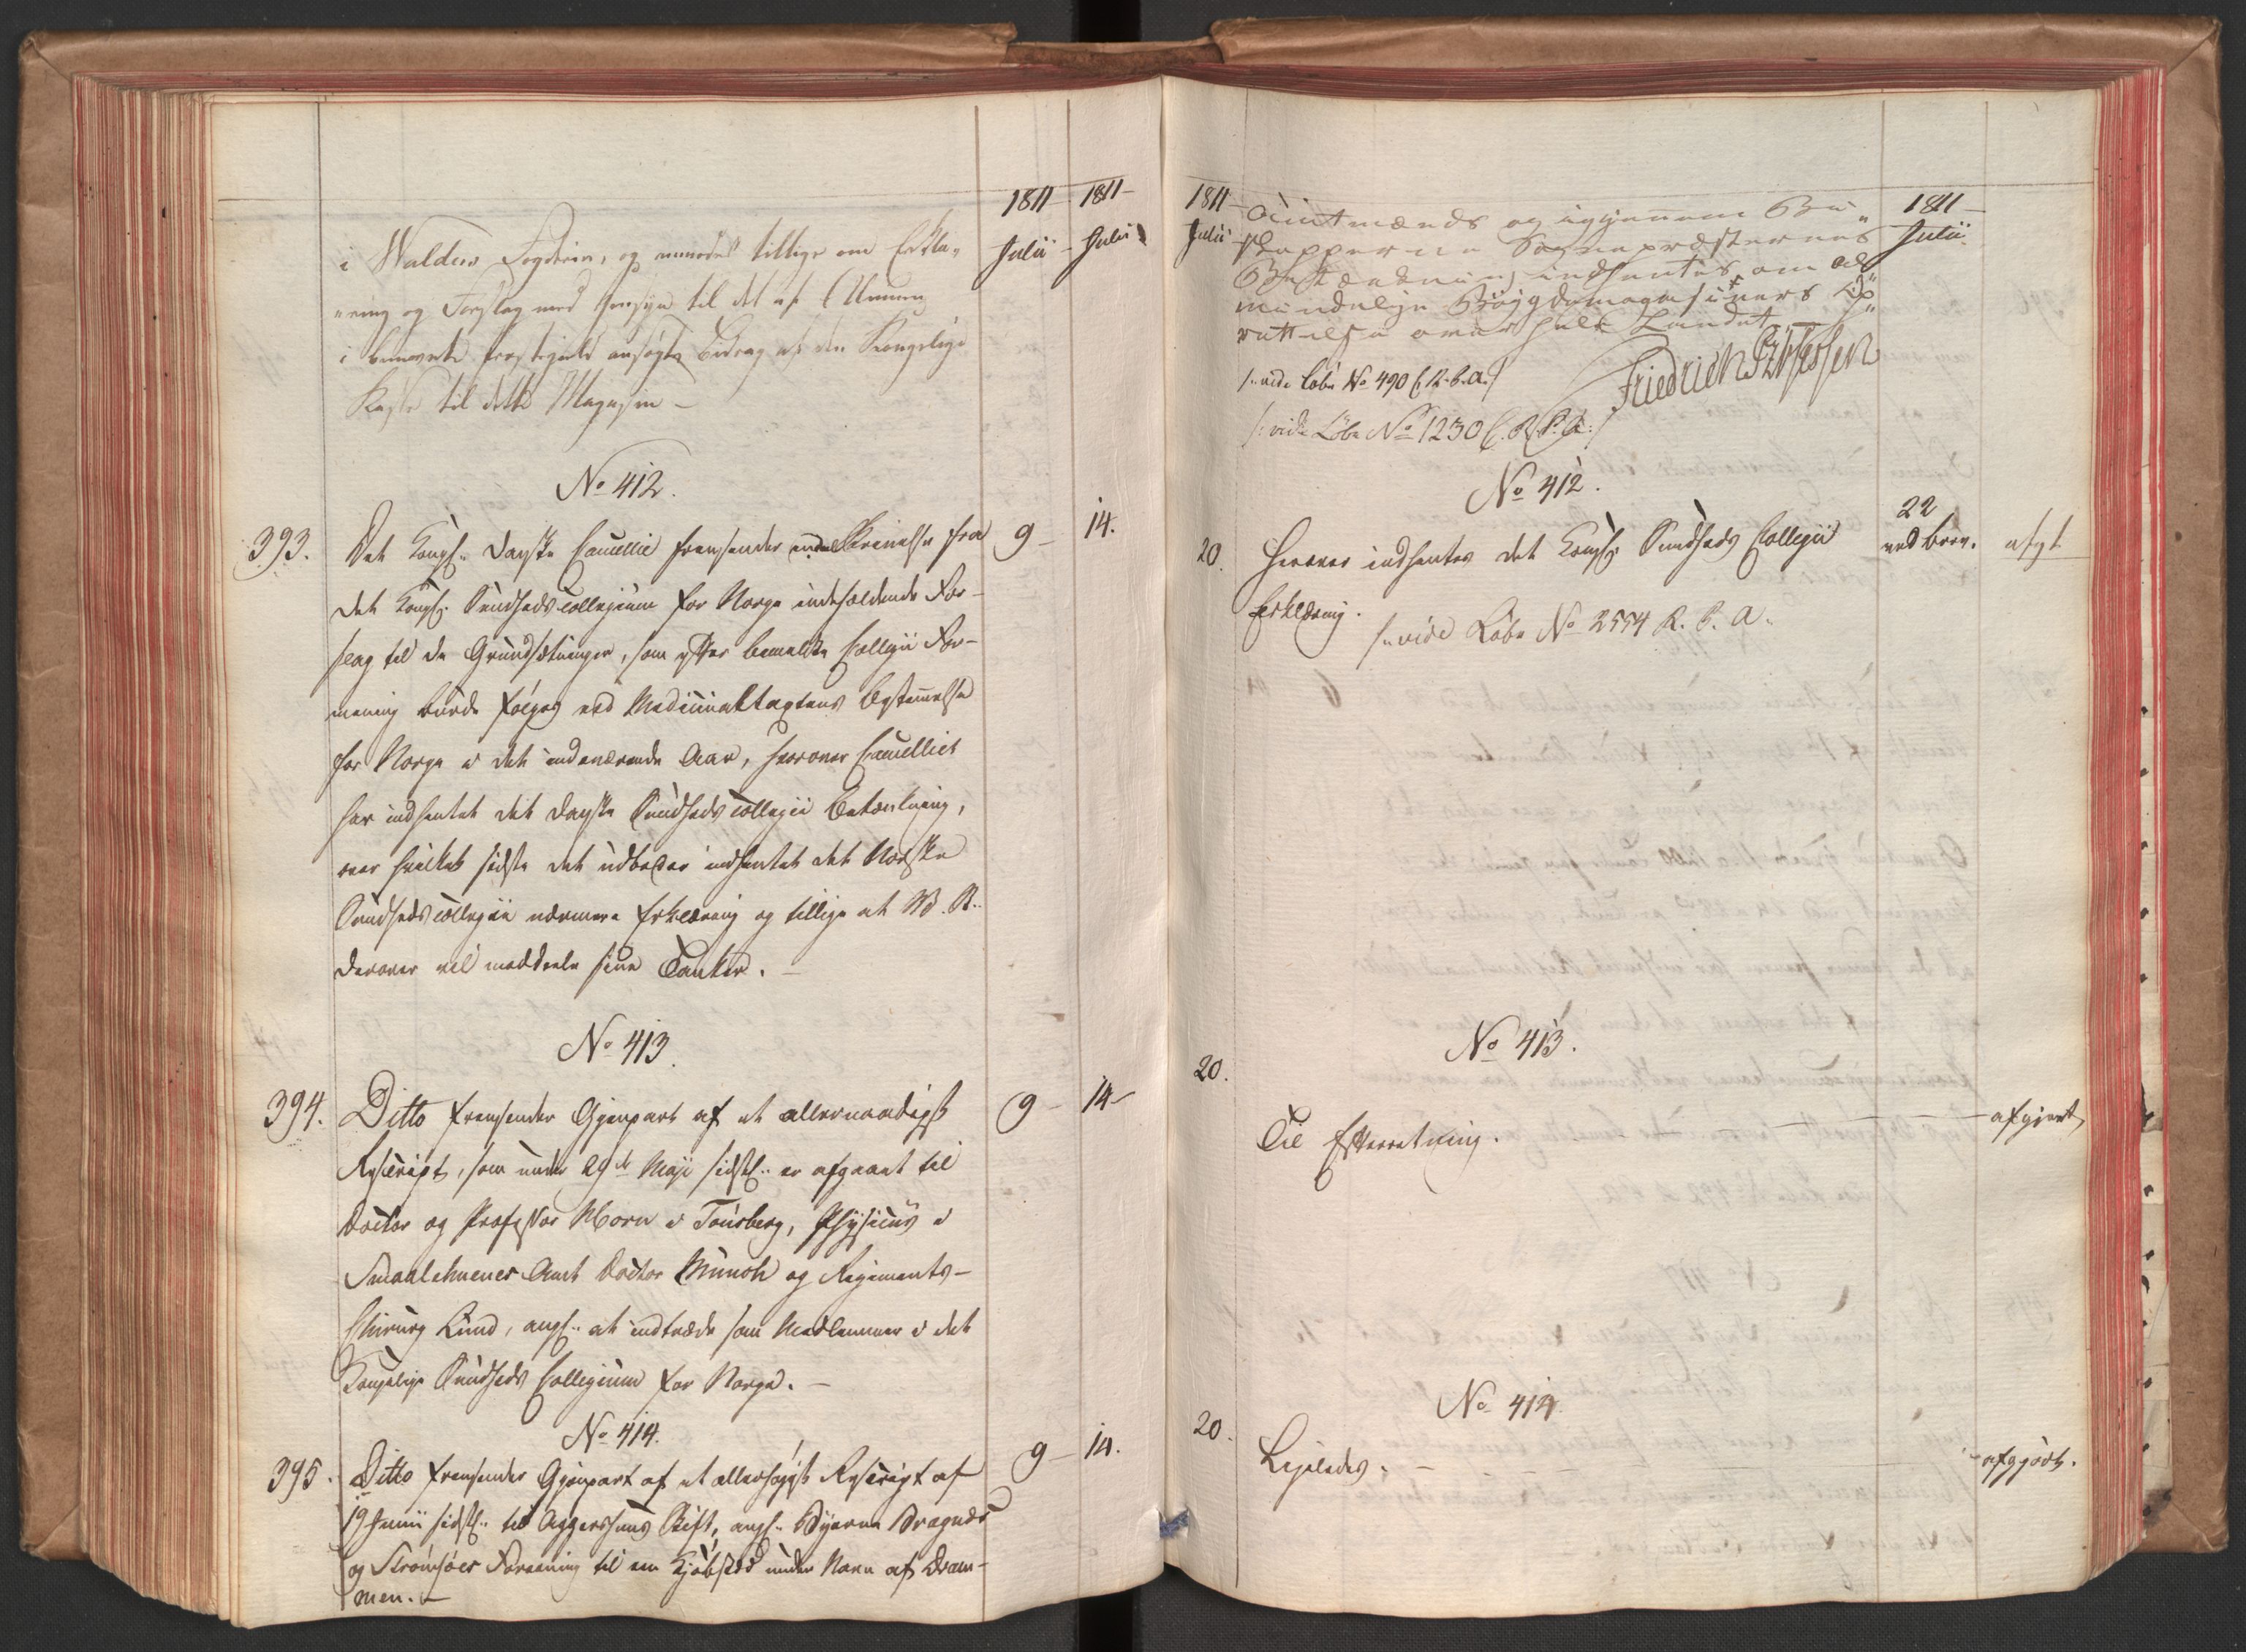 1811 1811
Julii Julii
i Walders Fogderie, og anmodes tillige om Erklæ„
„ring og Forslag med Hensyn til det af Almuen
i benævnte Præstegield ansøgte Bidrag af den Kongelige
Kasse til dette Magasin –
No 412.
393. Det Kongl. Danske Cancellie fremsender en Skrivelse fra 9 – 14.
det Kongl. Sundheds Collegium for Norge indeholdende For-
slag til de Grundsætninger, som efter bemeldte Collegii For-
mening burde følges ved Medicinaltaxtens Bestemmelse
for Norge i det indeværende Aar, hvorover Cancelliet
har indhentet det danske Sundheds Collegii Betænkning,
over hvilket sidste det udbeder indhentet det Norske
Sundheds Collegii nærmere Erklæring og tillige at R.
derover vil meddeele sine Tanker. –
No 413.
394. Ditto fremsender Gjenpart af et allernaadigst 9 – 14 –
Rescript, som under 29de Maji sidstl. er afgaaet til
Doctor og Professor Horn i Tønsberg, Physicus i
Smaalehnenes Amt Doctor Munch og Regiments-
Chirurg Lund, angl. at indtræde som Medlemmer i det
Kongelige Sundheds Collegium for Norge. –
No 414.
395. Ditto fremsender Gjenpart af et allerhøjst Rescript af 9 – 14.
19 Junii sidstl. til Aggershuus Stift, angl. Byerne Bragnæs
og Strømsøes Forening til een Kjøbsted under Navn af Dram-
men. –
1811 – 1811 –
Julii Julii
Amtmænds og igjennem Bi„
skopperne Sognepræsternes
Betænkning indhentes om al„
mindelige Bøygdemagasiners Op„
rettelse over hele Landet –
Friedrich
/: vide Løbe No 490 C. R. P. A. :/
/: vide Løbe No 1230 C. R. P. A. :/
No 412.
20. Herover indhentes det Kongl. Sundheds Collegii 22 ved brev. afgt
Erklæring.
/: vide Løbe No 2554 R. P. A.
No 413.
20.
Til Efterretning. – – – afgjort
No 414.
20.
Ligeledes. – – – afgjort.